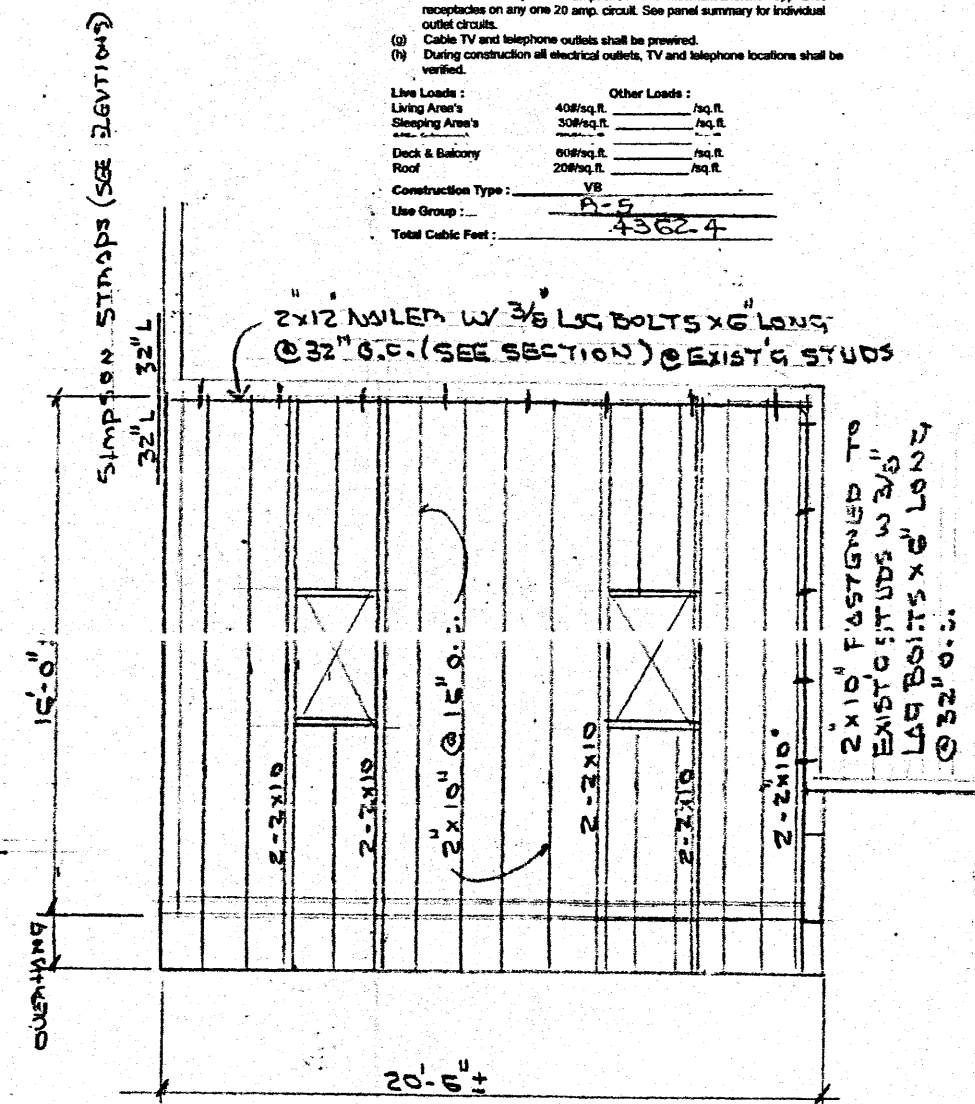 receptacles on any one 20 amp. circuit. See panel summary for individual
outlet circuits.
(g) Cable TV and telephone outlets shall be prewired.
(h) During construction all electrical outlets, TV and telephone locations shall be
verified.
Live Loads : Other Loads :
Living Area's 40#/sq.ft. ________ /sq.ft.
Sleeping Area's 30#/sq.ft. ________ /sq.ft.
Deck & Balcony 60#/sq.ft. ________ /sq.ft.
Roof 20#/sq.ft. ________ /sq.ft.
Construction Type : VB
Use Group : R-5
Total Cubic Feet : 4362.4
SIMPSON STRAPS (SEE ELEVTIONS)
32"L 32"L
2"x12" NAILER W/ 3/8" LAG BOLTS x 6" LONG
@ 32" O.C. (SEE SECTION) @ EXIST'G STUDS
2"x10" FASTENED TO
EXIST'G STUDS W 3/8"
LAG BOLTS x 6" LONG
@ 32" O.C.
2-2x10
2-2x10
2"x10" @ 16" O.C.
2-2x10
2-2x10
2-2"x10"
OVERHANG
20'-6"±